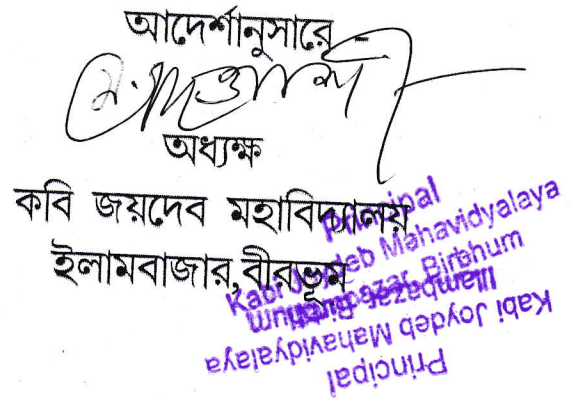 আদের্শানুসারে -
অধ্যক্ষ
কবি জয়দেব মহাবিদ্যালয়
ইলামবাজার, বীরভূম
Principal
Kabi Joydeb Mahavidyalaya
Illambazar, Birbhum
Principal
Kabi Joydeb Mahavidyalaya
Illambazar, Birbhum